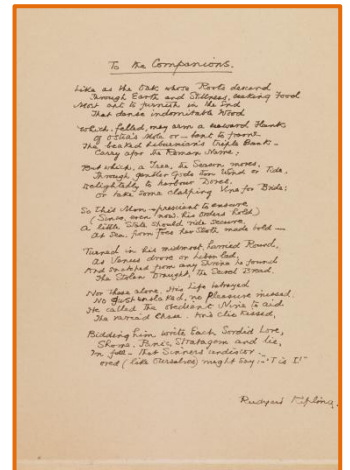 To the Companions.
Like as the Oak whose Roots descend
Through Earth and Stillness seeking Food
Most apt to furnish in the End
That dense indomitable Wood
Which, felled, may arm a seaward Flank
of Ostia's Mole or – bent to frame
The beaked Liburnian's Triple Bank –
Carry afar the Roman Name;
But which, a Tree, the Season moves,
Through gentler Gods than Wind or Tide,
Delightedly to harbour Doves,
Or take some clasping Vine for Bride;
So this Man – prescient to ensure
(Since, even now, his orders hold)
A little State should ride secure
At Sea, from Foes her Sloth made bold –
Turned in his midmost harried Round,
As Venus drove or Liber led,
And snatched from any Shrine he found
The Stolen Draught, the Secret Bread.
Nor these alone. His Life betrayed
No Gust unslaked, no Pleasure missed.
He called the obedient Nine to aid
The varied Chase. And Clio kissed,
Bidding him write Each Sordid Love,
Shame, Panic, Stratagem and lie,
In full – that Sinners
(like Ourselves) might say:– "'T is I!"
Rudyard Kipling.